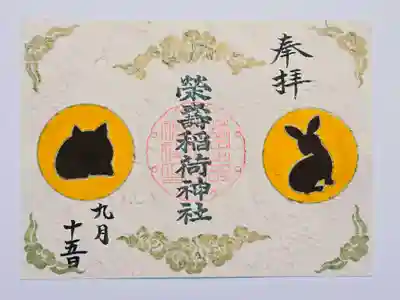 奉拝
榮壽稲荷神社
九月
十五日